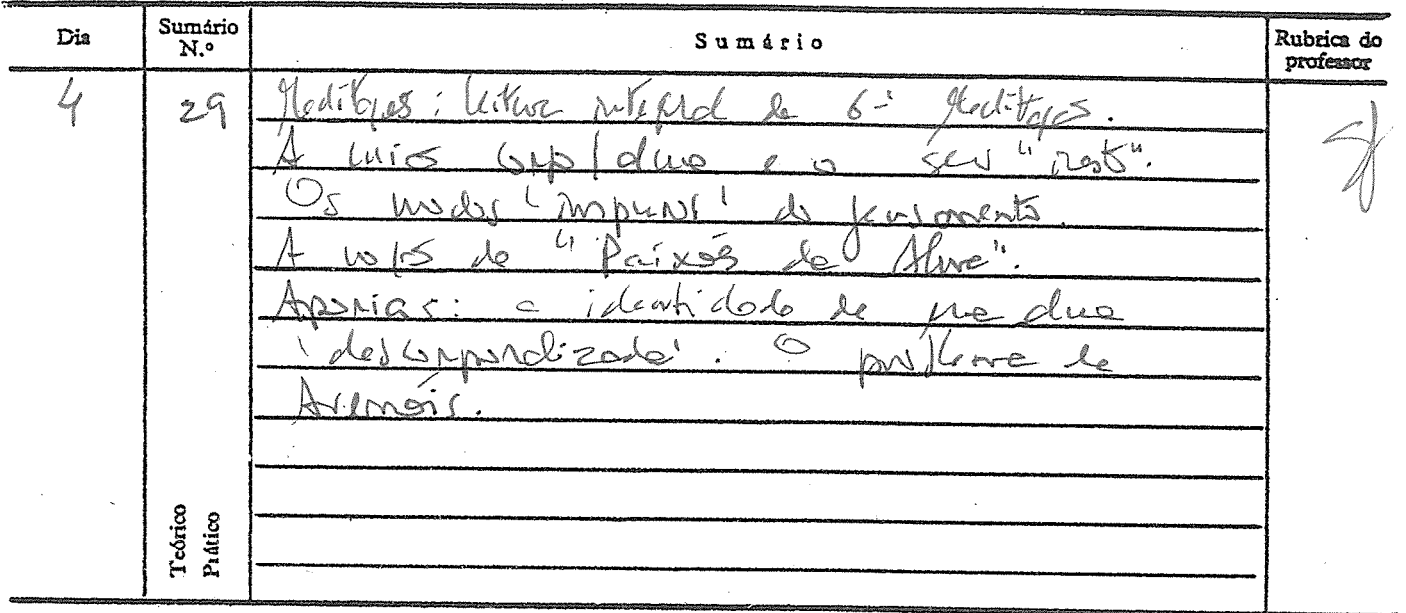 Dia Sumário N.º Sumário Rubrica do professor
4 29 Meditações: leitura integral da 6ª Meditações.
A união corpo/alma e o seu "resto".
Os modos 'impuros' do pensamento.
A noção de "Paixões da Alma".
Aporias: a identidade de uma alma
'descorporalizada'. O problema de
Averróis.
Teórico
Prático